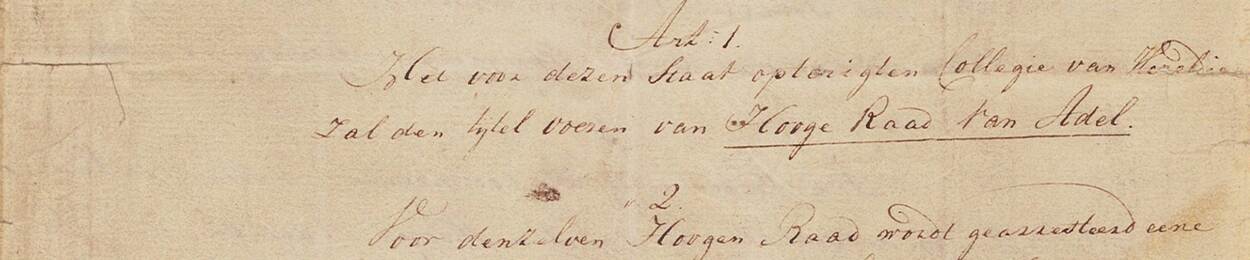 Art: 1.
Het voor dezen Staat opterigten Collegie van
zal den tytel voeren van Hooge Raad van Adel.
2.
Voor denzelven Hoogen Raad wordt gearresteerd eene